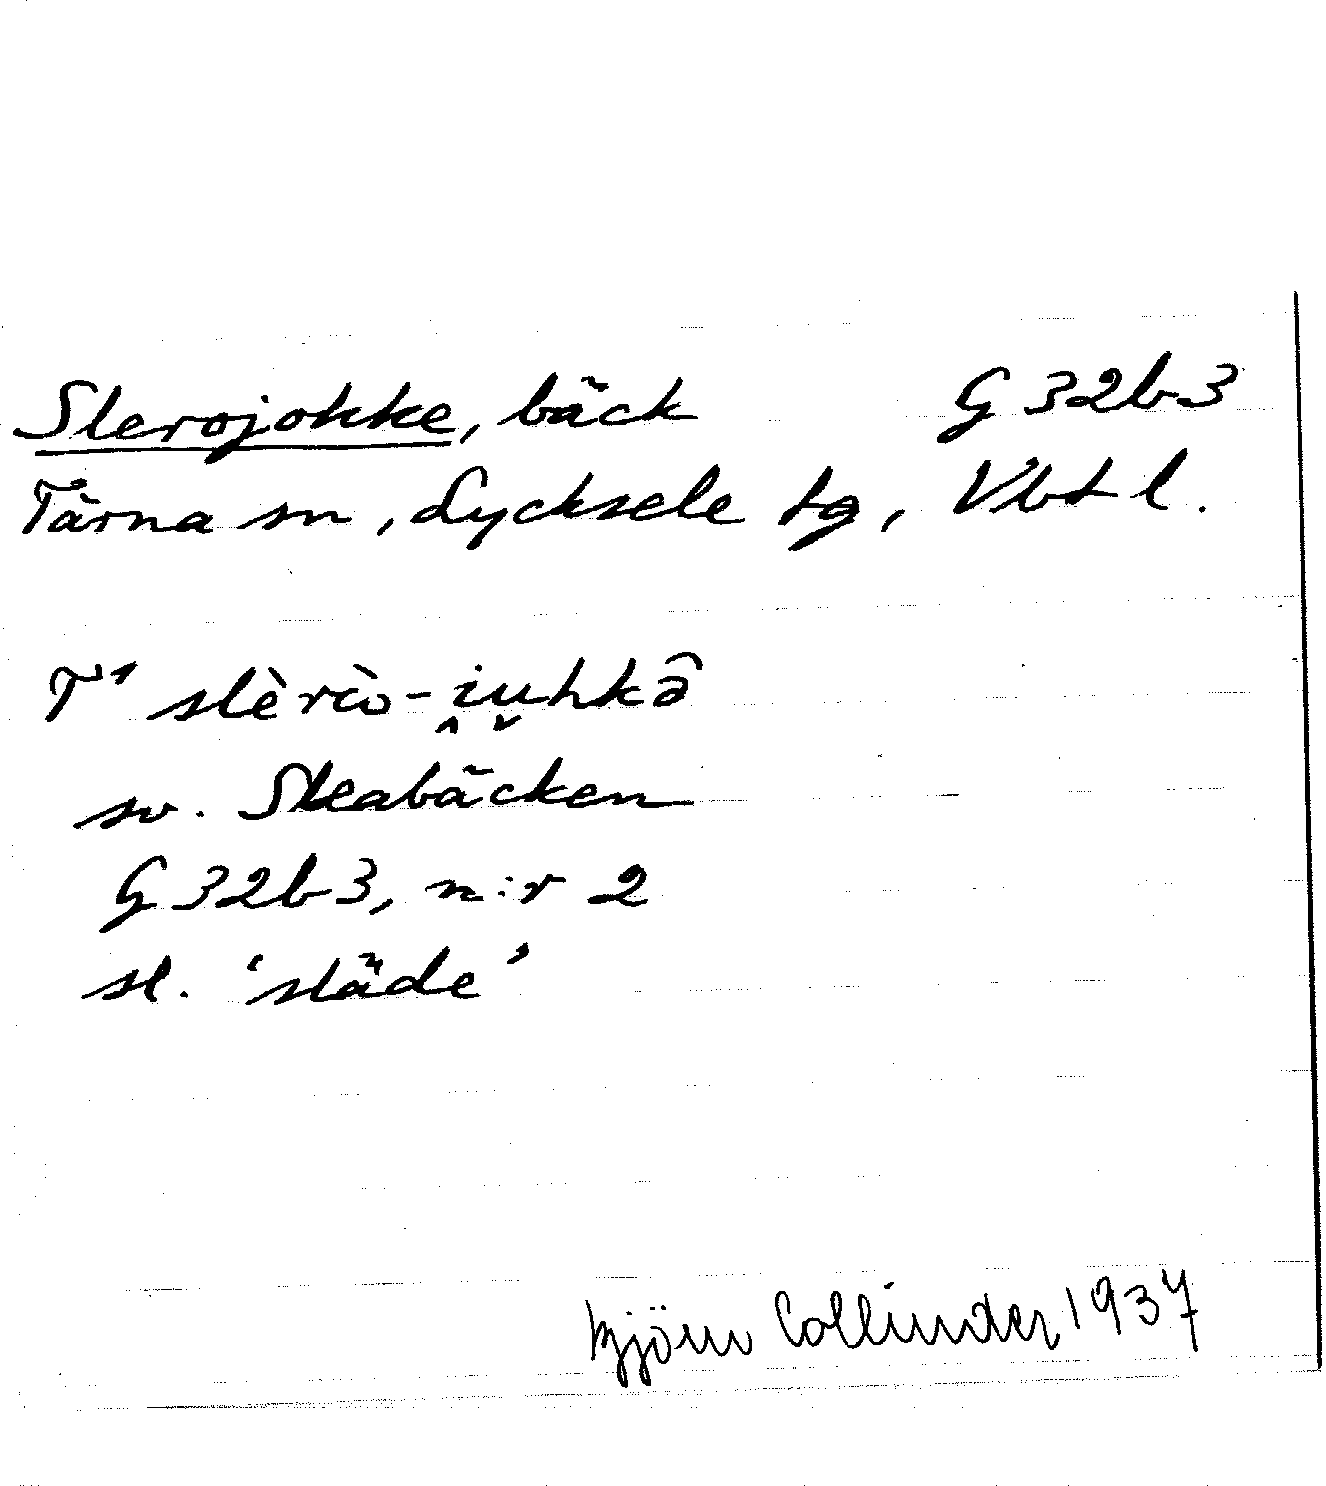 Slerojokke, bäck G 32b3
Tärna sn, Lycksele tg, Vbtl.
T¹ slèrò-i̯u̬hkâ
sv. Sleabäcken
G 32b3, n:r 2
sl. ‘släde’
Björn Collinder 1937